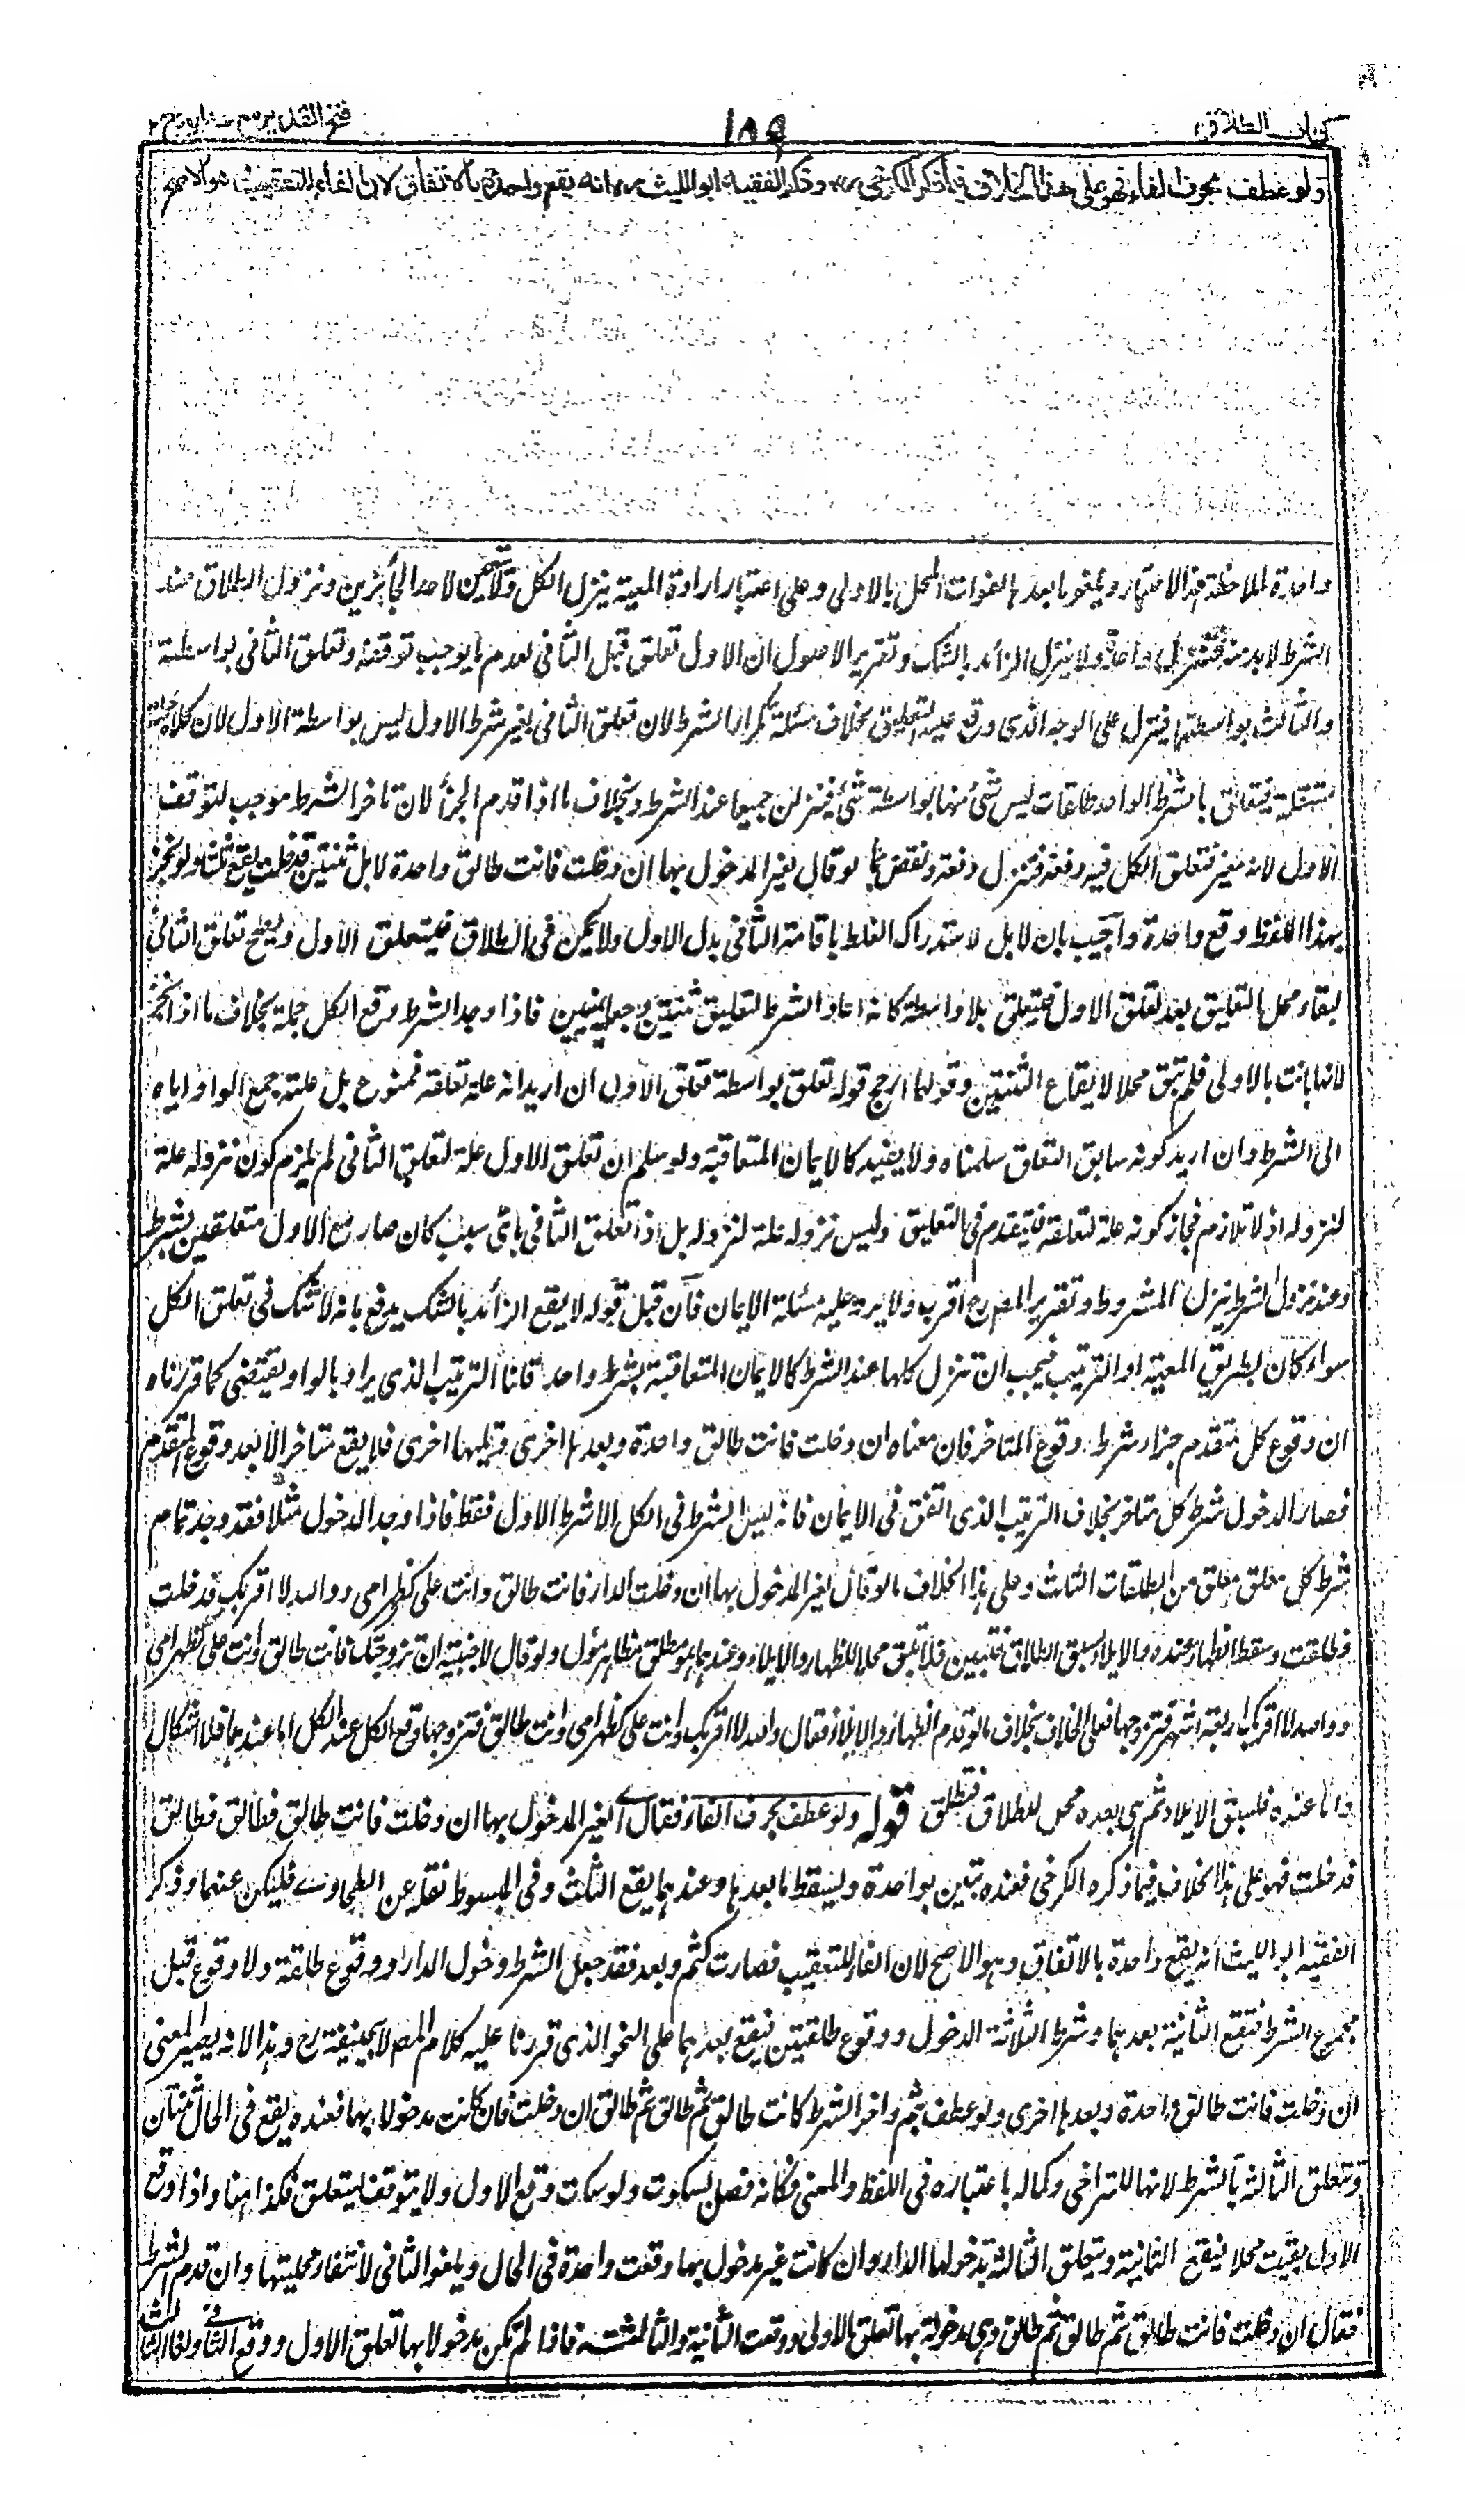 كتاب الطلاق
١٨٩
فتح القدير مع هدايه ج ٢
ولو عطف بحرف الفاء فهو على هذا الخلاف فيما ذكر الكرخي رح وذكر الفقيه ابو الليث رح انه يقع واحدة بالاتفاق لان الفاء للتعقيب هو الاصح
واحدة لملاحظة هذا الاعتبار ويلغو ما بعدها لفوات المحل بالاولى وعلى اعتبار ارادة المعية ينزل الكل ولا تعين لاحد الجائزين ونزول الطلاق عند
الشرط لابد منه فتنزل واحدة ولا ينزل الزائد بالشك وتقرير الاصول ان الاول تعلق قبل الثانى لعدم ما يوجب توقفه وتعلق الثانى بواسطة
والثالث بواسطتهما فينزل على الوجه الذى وقع عليه التعليق بخلاف مسئلة تكرار الشرط لان تعلق الثانى بغير شرط الاول ليس بواسطة الاول لان كلا جملة
مستقلة فيتعلق بالشرط الواحد طلقات ليس شئ منها بواسطة شئ فينزلن جميعا عند الشرط وبخلاف ما اذا قدم الجزأ لان تاخر الشرط موجب لتوقف
الاول لانه مغير فتعلق الكل فيه دفعة فتنزل دفعة ونقض بما لو قال لغير المدخول بها ان دخلت فانت طالق واحدة لا بل ثنتين فدخلت يقع ثلث ولو نجز
بهذا اللفظ وقع واحدة واجيب بان لا بل لاستدراك الغلط باقامة الثانى بدل الاول ولا يمكن فى الطلاق فيتعلق الاول ويصح تعلق الثانى
لبقاء محل التعليق بعد تعلق الاول فيتعلق بلا واسطة كانه اعاد الشرط لتعليق ثنتين وجعله يمينين فاذا وجد الشرط وقع الكل جملة بخلاف ما اذا نجز
لانها بانت بالاولى فلم تبق محلا لايقاع الثنتين وقولهما ارجح قوله تعلق بواسطة تعلق الاول ان اريد انه علة تعلقه فممنوع بل علته جمع الواو اياه
الى الشرط وان اريد كونه سابق التعلق سلمناه ولا يفيد كالايمان المتعاقبة ولو سلم ان تعلق الاول علة لتعلق الثانى لم يلزم كون نزوله علة
لنزوله اذ لا تلازم فجاز كونه علة لتعلقه فيتقدم فى التعليق وليس نزوله علة لنزوله بل اذا تعلق الثانى باى سبب كان صار مع الاول متعلقين بشرط
وعند نزول الشرط ينزل المشروط وتقرير المص رح اقرب ولا يرد عليه مسئلة الايمان فان قيل قوله لا يقع الزائد بالشك يدفع بانه لا شك فى تعلق الكل
سواء كان بطريق المعية او الترتيب فيجب ان تنزل كلها عند الشرط كالايمان المتعاقبة بشرط واحد قلنا الترتيب الذى يراد بالواو يقتضى كما قررناه
ان وقوع كل متقدم جزاء شرط وقوع المتاخر فان معناه ان دخلت فانت طالق واحدة وبعدها اخرى وقبلها اخرى فلا يقع متاخر الا بعد وقوع المتقدم
فصار الدخول شرط كل متاخر بخلاف الترتيب الذى اتفق فى الايمان فانه ليس الشرط فى الكل الا شرط الاول فقط فاذا وجد الدخول مثلا فقد وجد تمام
شرط كل معلق معلق من الطلقات الثلث وعلى هذا الخلاف ما لو قال لغير المدخول بها ان دخلت الدار فانت طالق وانت على كظهر امى ووالله لا اقربك فدخلت
فطلقت وسقط الظهار عنده والايلاء لسبق الطلاق فتبين فلا تبقى محلا للظهار والايلاء وعندهما هو مطلق مظاهر مؤل ولو قال لاجنبية ان تزوجتك فانت طالق وانت على كظهر امى
ووالله لا اقربك اربعة اشهر فتزوجها فعلى الخلاف بخلاف ما لو قدم الظهار والايلاء فقال والله لا اقربك وانت على كظهر امى وانت طالق فتزوجها وقع الكل عند الكل اما عندهما فلا اشكال
واما عنده فلسبق الايلاء ثم هى بعده محل للطلاق فتطلق قوله ولو عطف بحرف الفاء فقال اى لغير المدخول بها ان دخلت فانت طالق فطالق فطالق
فدخلت فهو على هذا الخلاف فيما ذكره الكرخى فعنده تبين بواحدة ويسقط ما بعدها وعندهما يقع الثلث وفى المبسوط نقله عن الطحاوى فليكن عنهما وذكر
الفقيه ابو الليث انه يقع واحدة بالاتفاق وهو الاصح لان الفاء للتعقيب فصارت كثم وبعد فقد جعل الشرط دخول الدار ووقوع طلقة ولا وقوع قبل
مجموع الشرط فتقع الثانية بعدهما وشرط الثلاثة الدخول ووقوع طلقتين فيقع بعدهما على النحو الذى قررنا عليه كلام المص لابيحنيفة رح وهذا لانه يصير المعنى
ان دخلت فانت طالق واحدة وبعدها اخرى ولو عطف بثم واخر الشرط كانت طالق ثم طالق ثم طالق ان دخلت فان كانت مدخولا بها فعنده يقع فى الحال ثنتان
وتتعلق الثالثة بالشرط لانها للتراخى وكماله باعتباره فى اللفظ والمعنى فكانه فصل بسكوت ولو سكت وقع الاول ولا يتوقف ليتعلق فكذا هنا واذا وقع
الاول بقيت محلا فيقع الثانية ويتعلق الثالثة بدخولها الدار وان كانت غير مدخول بها وقعت واحدة فى الحال ويلغو الثانى لانتفاء محليتها وان قدم الشرط
فقال ان دخلت فانت طالق ثم طالق ثم طالق وهى مدخولة بها تعلق الاولى ووقعت الثانية والثالثة فاذا لم تكن مدخولا بها تعلق الاول ووقع الثانى ولغا الثالث